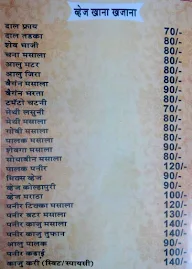 व्हेज खाना खजाना
दाल फ्राय 70/-
दाल तडका 80/-
शेव भाजी 80/-
चना मसाला 80/-
आलु मटर 80/-
आलु जिरा 80/-
बैंगन मसाला 80/-
बैंगन भरता 90/-
टमॅटो चटनी 70/-
मेथी लसुनी 70/-
मेथी मसाला 80/-
गोबी मसाला 80/-
पालक मसाला 80/-
शेवगा मसाला 80/-
सोयाबीन मसाला 80/-
पालक पनीर 120/-
मिक्स व्हेज 90/-
व्हेज कोल्हापुरी 90/-
व्हेज मराठा 100/-
पनीर टिक्का मसाला 120/-
पनीर बटर मसाला 130/-
पनीर काजु मसाला 140/-
पनीर काजु तुफान 140/-
आलु पालक 90/-
पनीर कढाई 100/-
काजु करी (स्विट/स्पायसी) 140/-